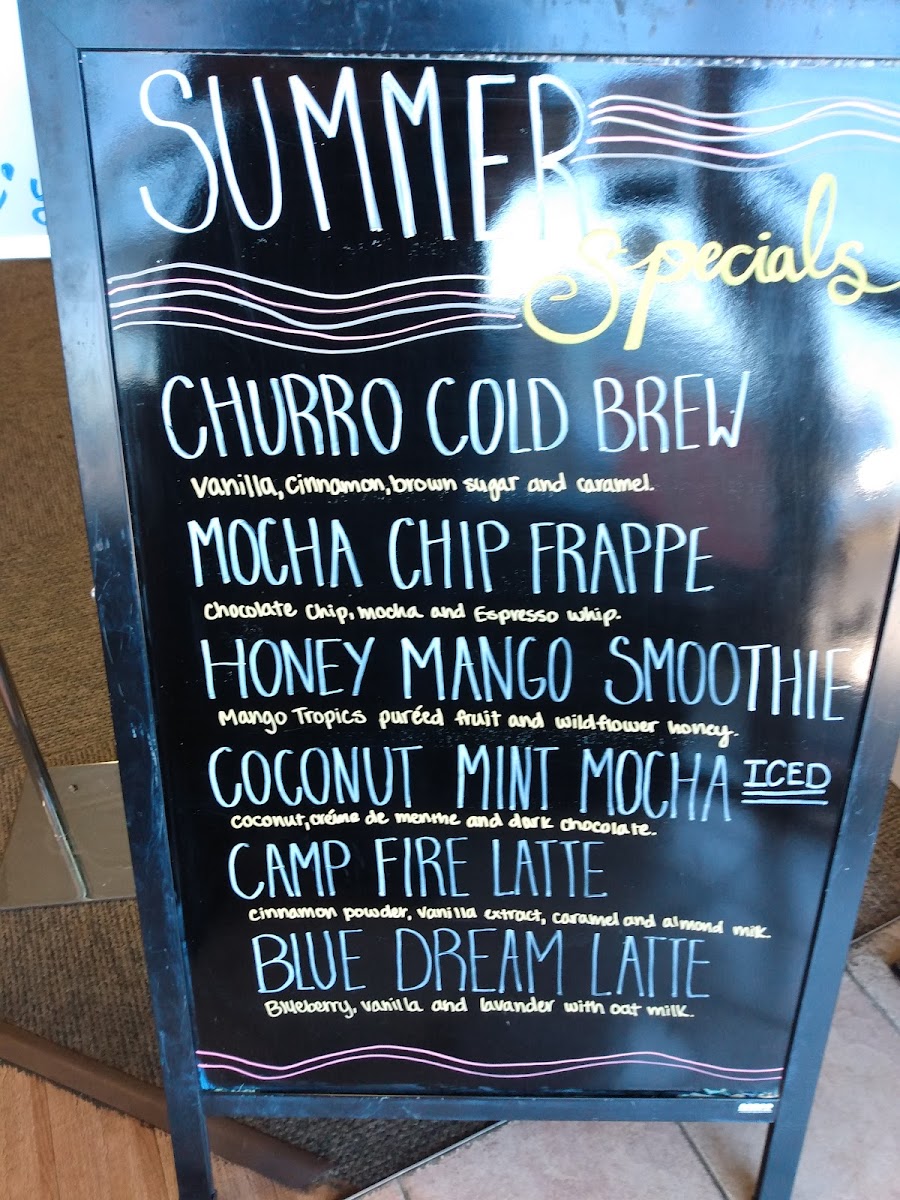 SUMMER
Specials
CHURRO COLD BREW
Vanilla, Cinnamon, brown sugar and caramel.
MOCHA CHIP FRAPPE
Chocolate Chip, mocha and Espresso whip.
HONEY MANGO SMOOTHIE
Mango Tropics puréed fruit and wildflower honey.
COCONUT MINT MOCHA ICED
coconut, créme de menme and dark chocolate.
CAMP FIRE LATTE
cinnamon powder, vanilla extract, caramel and almond milk.
BLUE DREAM LATTE
Blueberry, vanilla and lavander with oat milk.